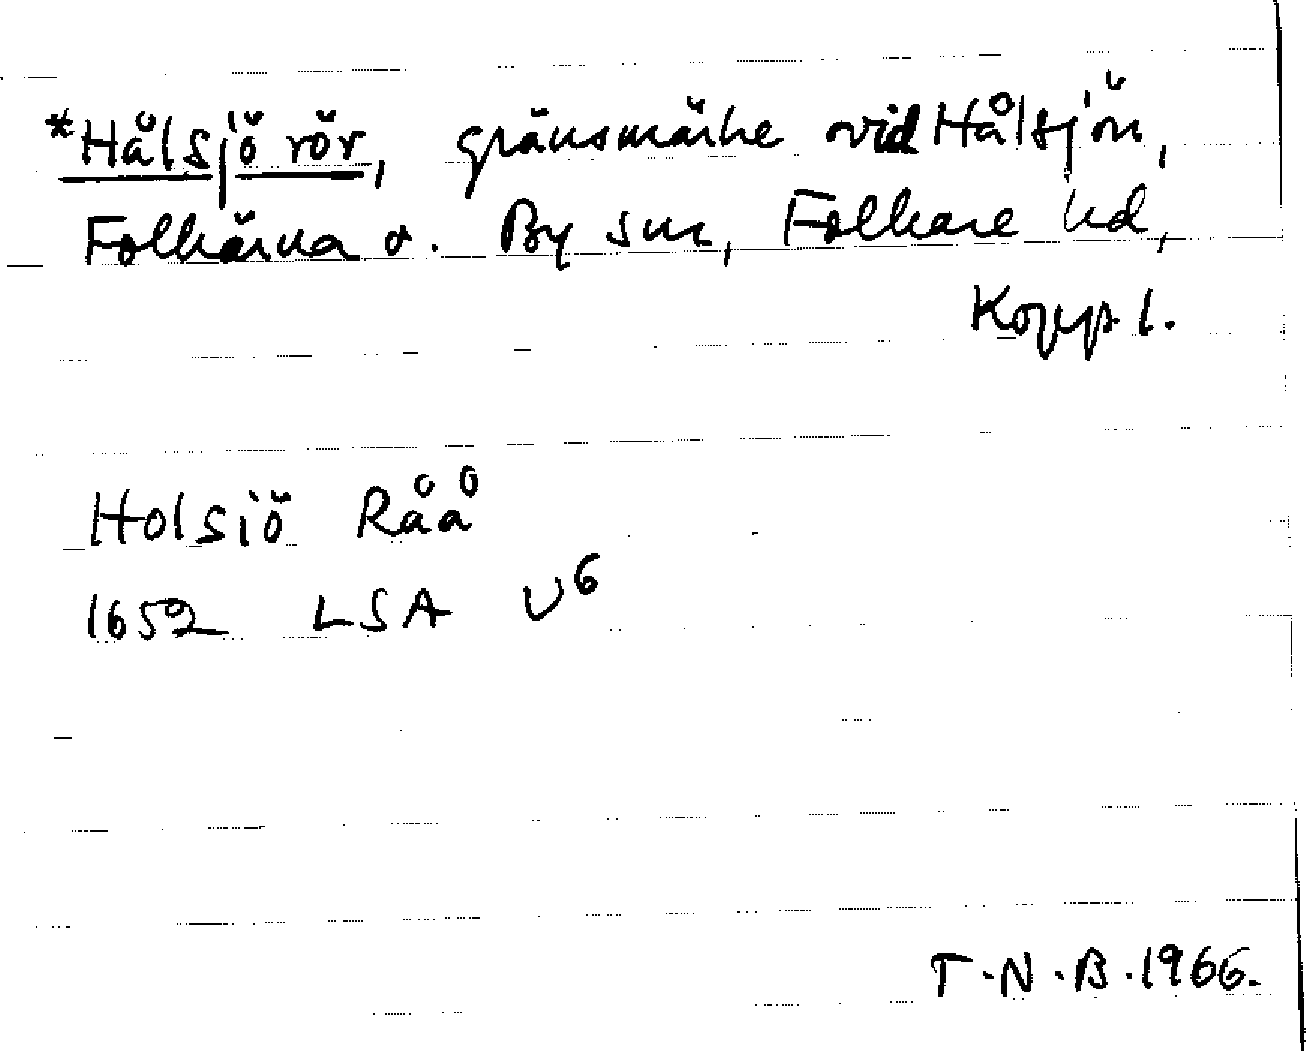 *Hålsjö rör, gränsmärke vid Hålsjön,
Folkärna o. By snr, Folkare hd,
Kopp l.
Holsiö Råå
1652 LSA U6
T.N.B.1966.